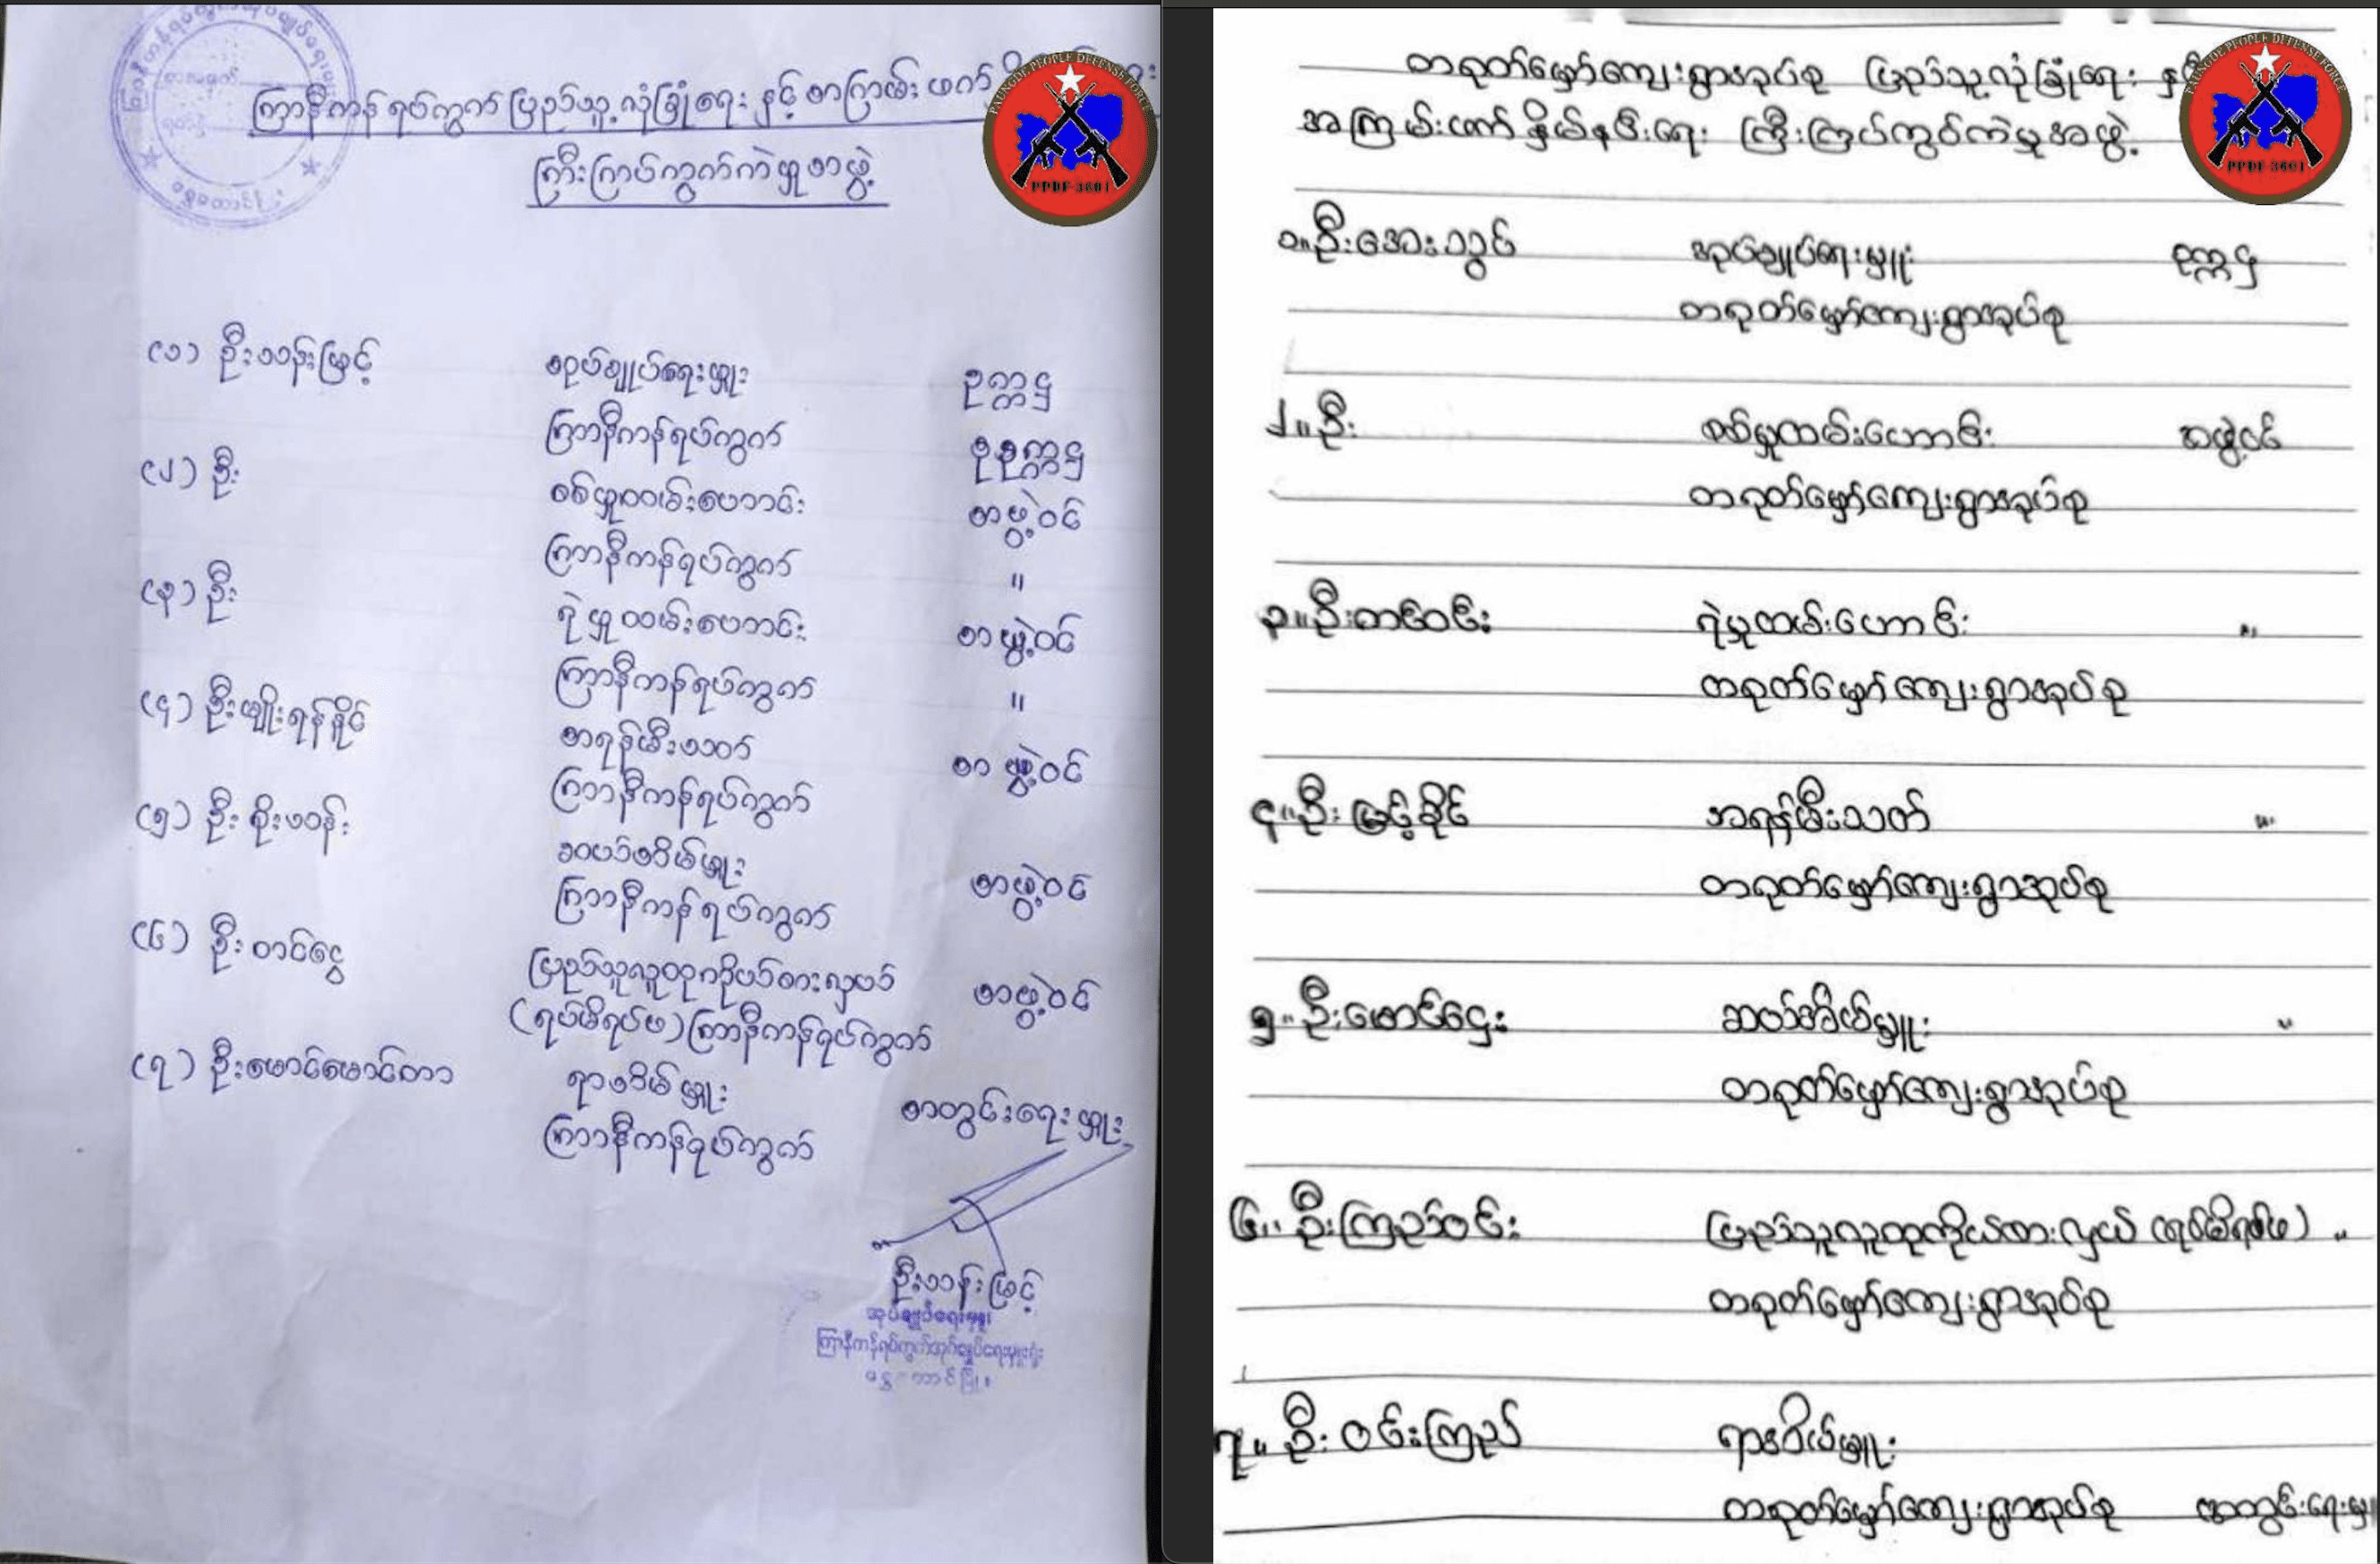 ကြာနီကန် ရပ်ကွက် ပြည်သူ့လုံခြုံရေး နှင့် အကြမ်းဖက်
ကြီးကြပ်ကွပ်ကဲမှုအဖွဲ့
PAUNGDE PEOPLE DEFENSE FORCE
PPDF-3601
(၁) ဦးသန်းမြင့် အုပ်ချုပ်ရေးမှူး ဥက္ကဋ္ဌ
ကြာနီကန်ရပ်ကွက် ဒုဥက္ကဋ္ဌ
(၂) ဦး စစ်မှုထမ်းဟောင်း အဖွဲ့ဝင်
ကြာနီကန်ရပ်ကွက် "
(၃) ဦး ရဲမှုထမ်းဟောင်း အဖွဲ့ဝင်
ကြာနီကန်ရပ်ကွက် "
(၄) ဦးမျိုးရန်နိုင် အရန်မီးသတ် အဖွဲ့ဝင်
ကြာနီကန်ရပ်ကွက်
(၅) ဦးစိုးသန်း ဆယ်အိမ်မှူး အဖွဲ့ဝင်
ကြာနီကန်ရပ်ကွက်
(၆) ဦးတင်ငွေ ပြည်သူလူထုကိုယ်စားလှယ် အဖွဲ့ဝင်
(ရပ်မိရပ်ဖ) ကြာနီကန်ရပ်ကွက်
(၇) ဦးမောင်မောင်တာ ရာအိမ်မှူး အတွင်းရေးမှူး
ကြာနီကန်ရပ်ကွက်
ဦးသန်းမြင့်
အုပ်ချုပ်ရေးမှူး
ကြာနီကန်ရပ်ကွက်အုပ်ချုပ်ရေးမှူးရုံး
တရုတ်မှော်ကျေးရွာအုပ်စု ပြည်သူ့လုံခြုံရေး
အကြမ်းဖက်နှိမ်နင်းရေး ကြီးကြပ်ကွပ်ကဲမှုအဖွဲ့
PAUNGDE PEOPLE DEFENSE FORCE
PPDF-3601
၁။ ဦးအေးသွင် အုပ်ချုပ်ရေးမှူး ဥက္ကဋ္ဌ
တရုတ်မှော်ကျေးရွာအုပ်စု
၂။ ဦး စစ်မှုထမ်းဟောင်း အဖွဲ့ဝင်
တရုတ်မှော်ကျေးရွာအုပ်စု
၃။ ဦးတင်ဝင်း ရဲမှုထမ်းဟောင်း "
တရုတ်မှော်ကျေးရွာအုပ်စု
၄။ ဦးမြင့်ခိုင် အရန်မီးသတ် "
တရုတ်မှော်ကျေးရွာအုပ်စု
၅။ ဦးမောင်ဌေး ဆယ်အိမ်မှူး "
တရုတ်မှော်ကျေးရွာအုပ်စု
၆။ ဦးကြည်ဝင်း ပြည်သူလူထုကိုယ်စားလှယ် (ရပ်မိရပ်ဖ) "
တရုတ်မှော်ကျေးရွာအုပ်စု
၇။ ဦးဝင်းကြည် ရာအိမ်မှူး
တရုတ်မှော်ကျေးရွာအုပ်စု အတွင်းရေးမှူး